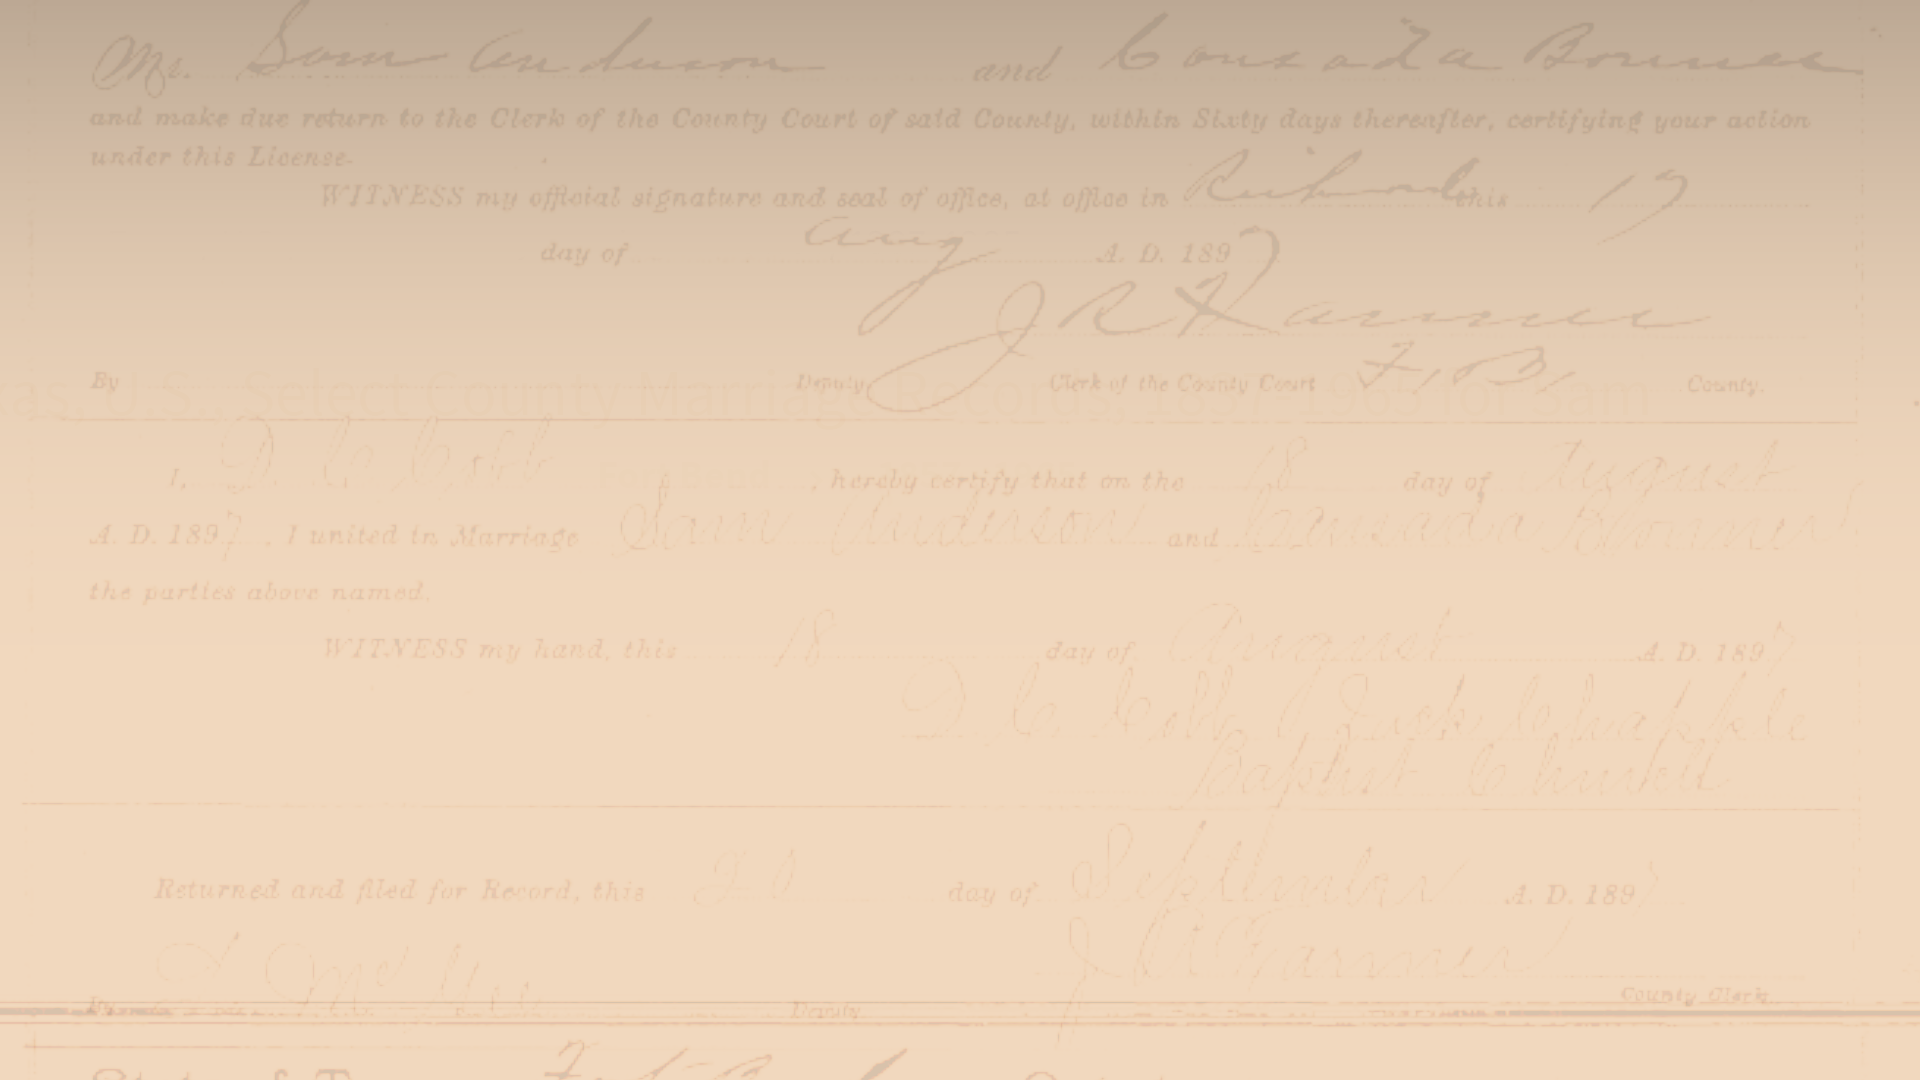 Mr. Sam Anderson and Consada Bonner
and make due return to the Clerk of the County Court of said County, within Sixty days thereafter, certifying your action
under this License.
WITNESS my official signature and seal of office, at office in Richmond this 17
day of Aug A. D. 1897
J R Farmer
By Deputy Clerk of the County Court F. B. County.
xas, U.S., Select County Marriage Records, 1837-1965 for Sam
I, D. C. Cobb, hereby certify that on the 18 day of August
A. D. 1897, I united in Marriage Sam Anderson and Consada Bonner
the parties above named.
WITNESS my hand, this 18 day of August A. D. 1897
D. C. Cobb
Baptist Church
Returned and filed for Record, this 20 day of September A. D. 1897
J R Farmer
By Deputy County Clerk